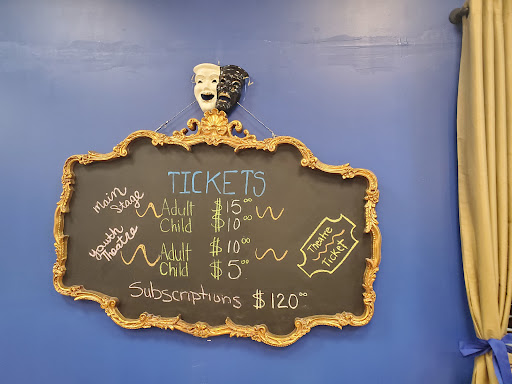 TICKETS
Main Stage
Adult $15.00
Child $10.00
Youth Theatre
Adult $10.00
Child $5.00
Subscriptions $120.00
Theatre Ticket